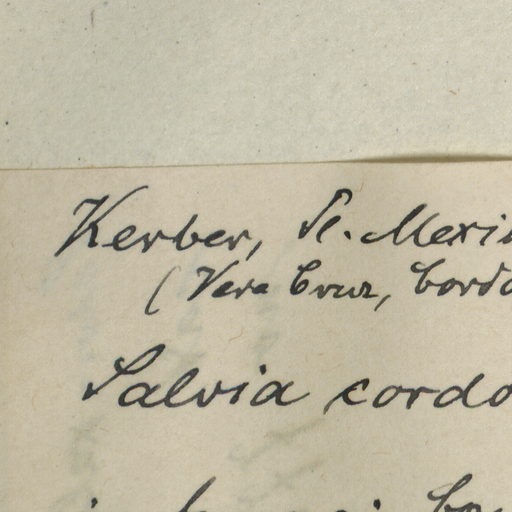 Kerber, Pl. Mexi
(Vera Cruz, Cordo
Salvia cordo